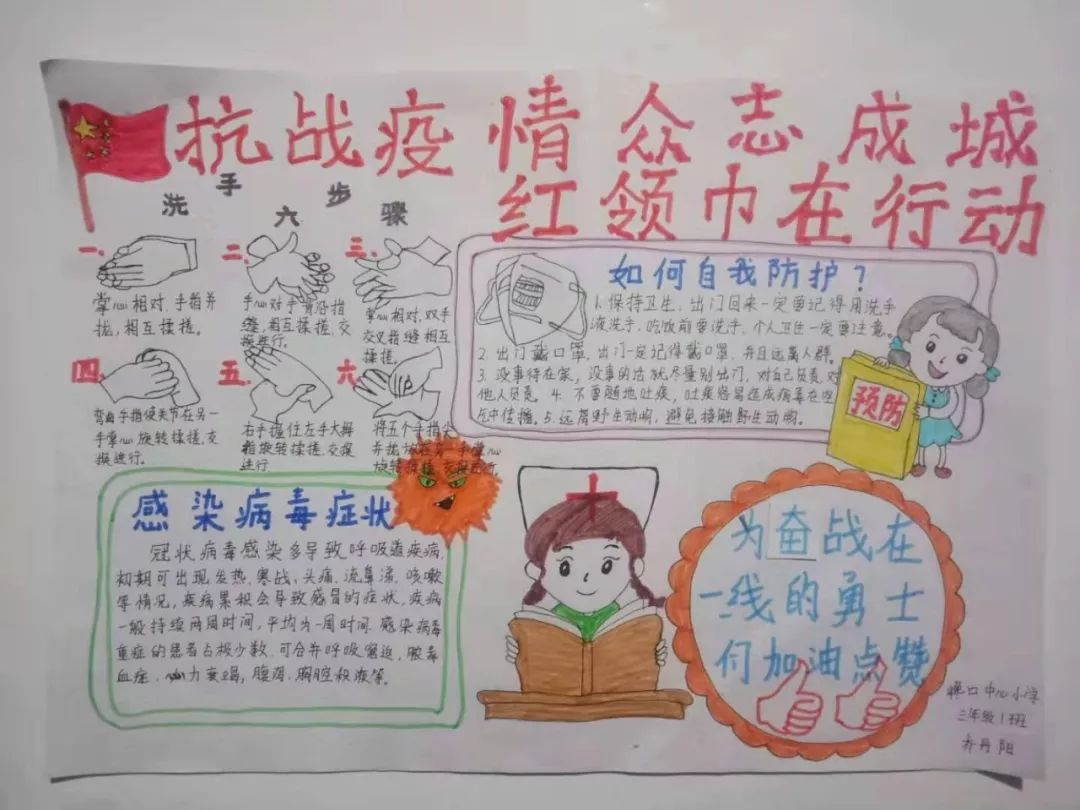 抗战疫情众志成城
红领巾在行动
洗手六步骤
一、
掌心相对,手指并
拢,相互揉搓。
二、
手心对手背沿指
缝,相互揉搓,交
换进行。
三、
掌心相对,双手
交叉指缝相互
揉搓。
四、
弯曲手指使关节在另一
手掌心旋转揉搓,交
换进行。
五、
右手握住左手大拇
指旋转揉搓,交换
进行
六、
将五个手指尖
并拢放在另一手掌心
旋转揉搓,交换进行
如何自我防护?
1.保持卫生,出门回来一定要记得用洗手
液洗手,吃饭前要洗手,个人卫生一定要注意。
2.出门戴口罩,出门一定记得戴口罩,并且远离人群。
3.没事待在家,没事的话就尽量别出门,对自己负责,对
他人负责。4.不要随地吐痰,吐痰容易造成病毒在空
气中传播。5.远离野生动物,避免接触野生动物。
预防
感染病毒症状
冠状病毒感染多导致呼吸道疾病,
初期可出现发热、寒战、头痛、流鼻涕、咳嗽
等情况,疾病累积会导致感冒的症状,疾病
一般持续两周时间,平均为一周时间.感染病毒
重症的患者占极少数,可合并呼吸窘迫,脓毒
血症,心力衰竭,腹泻,胸腔积液等。
为奋战在
一线的勇士
们加油点赞
中心小学
三年级1班
乔丹阳